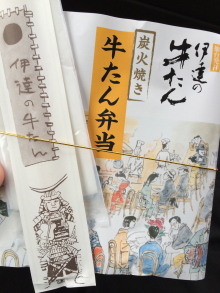 伊達の牛たん
伊達の
牛たん
炭火焼き
牛たん弁当